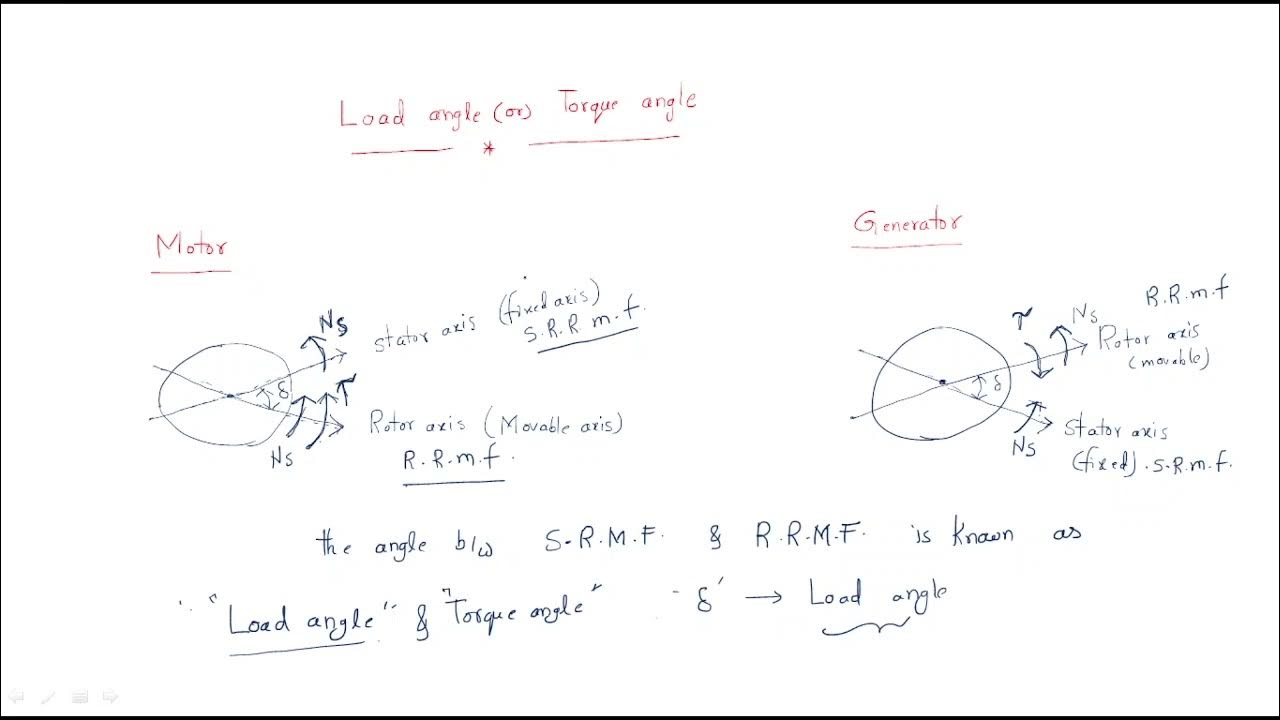 Load angle (or) Torque angle
*
Motor
Ns
stator axis (fixed axis)
S.R.R m.f.
δ
T
Rotor axis (Movable axis)
Ns
R.R.m.f.
Generator
R.R.m.f
T
Ns
Rotor axis
(movable)
δ
Stator axis
Ns
(fixed). S.R.m.f.
the angle b/w S.R.M.F. & R.R.M.F. is known as
"Load angle" & "Torque angle" 'δ' → Load angle